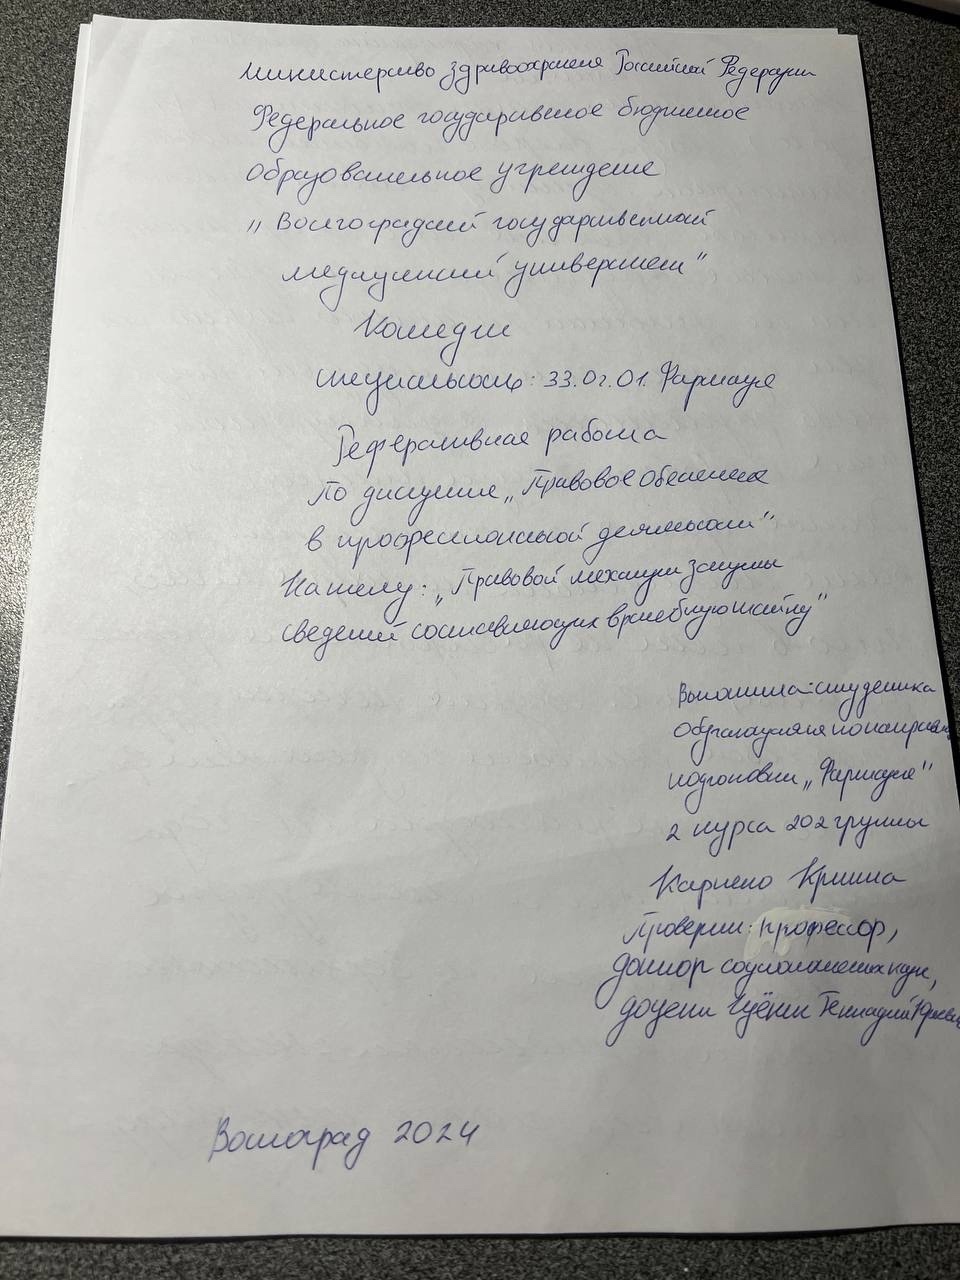 Министерство здравоохранения Российской Федерации
Федеральное государственное бюджетное
образовательное учреждение
„Волгоградский государственный
медицинский университет"
Колледж
специальность: 33.02.01. Фармация
Реферативная работа
По дисциплине „Правовое обеспечение
в профессиональной деятельности"
На тему: „Правовой механизм защиты
сведений составляющих врачебную тайну"
Выполнила: студентка
обучающаяся по направлению
подготовки „Фармация"
2 курса 202 группы
Проверил: профессор,
доктор социологических наук,
доцент Геннадий Юрьевич
Волгоград 2024